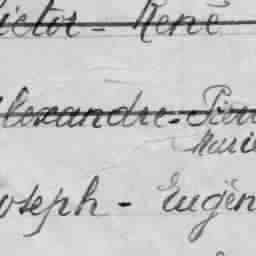 Victor - René
Alexandre - Pierre
Marie
Joseph - Eugène